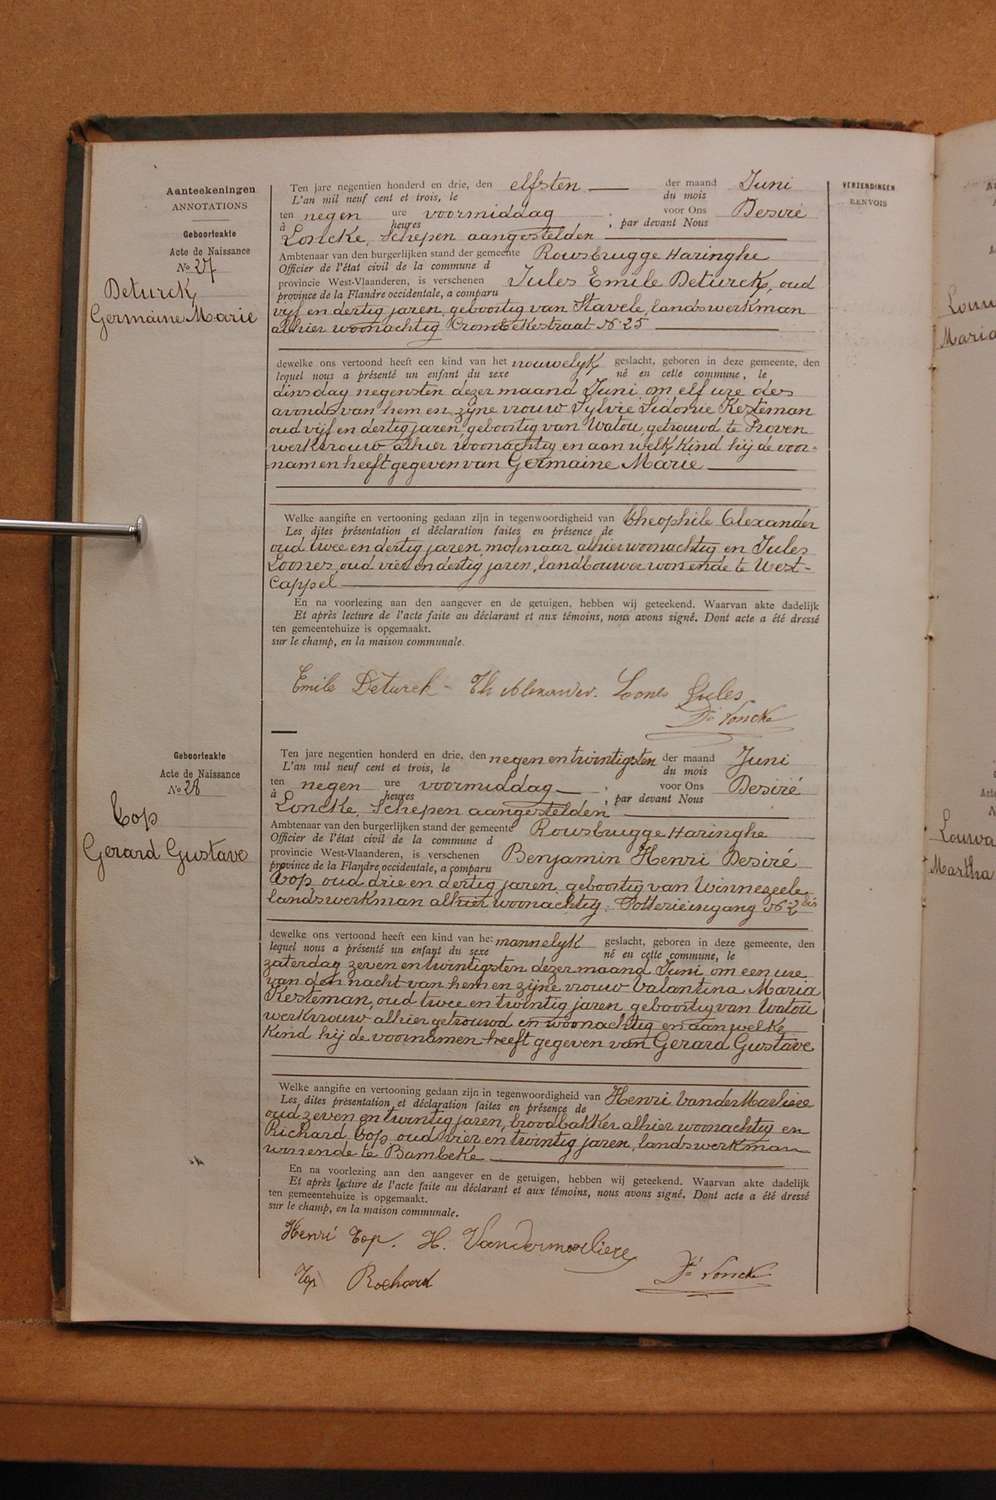 Aanteekeningen
ANNOTATIONS
Geboorteakte
Acte de Naissance
No 27
Deturck
Germaine Marie
Ten jare negentien honderd en drie, den elfsten der maand Juni
L'an mil neuf cent et trois, le du mois
ten negen ure voormiddag ; voor Ons Desiré
à heures , par devant Nous
Loncke, Schepen aangestelden
Ambtenaar van den burgerlijken stand der gemeente Rousbrugge Haringhe
Officier de l'état civil de la commune d
provincie West-Vlaanderen, is verschenen Jules Emile Deturck, oud
province de la Flandre occidentale, a comparu
vijf en dertig jaren, geboortig van Stavele, landswerkman
alhier woonachtig Crombekestraat No 25
dewelke ons vertoond heeft een kind van het vrouwelyk geslacht, geboren in deze gemeente, den
lequel nous a présenté un enfant du sexe né en cette commune, le
dinsdag negensten dezer maand Juni om elf ure des
avonds van hem en zijne vrouw Sylvie Sidonie Kesteman
oud vijf en dertig jaren, geboortig van Watou, getrouwd te Proven
werkvrouw alhier woonachtig en aan welk kind hij de voor-
namen heeft gegeven van Germaine Marie
Welke aangifte en vertooning gedaan zijn in tegenwoordigheid van Theophile Alexander
Les dites présentation et déclaration faites en présence de
oud twee en dertig jaren, molenaar alhier woonachtig en Jules
Loones, oud vier en dertig jaren, landbouwer wonende te West-
Cappel
En na voorlezing aan den aangever en de getuigen, hebben wij geteekend. Waarvan akte dadelijk
Et après lecture de l'acte faite au déclarant et aux témoins, nous avons signé. Dont acte a été dressé
ten gemeentehuize is opgemaakt.
sur le champ, en la maison communale.
Emile Deturck - Th Alexander. Loones Jules
Dé Loncke
Geboorteakte
Acte de Naissance
No 28
Top
Gerard Gustave
Ten jare negentien honderd en drie, den negen en twintigsten der maand Juni
L'an mil neuf cent et trois, le du mois
ten negen ure voormiddag ; voor Ons Desiré
à heures , par devant Nous
Loncke, Schepen aangestelden
Ambtenaar van den burgerlijken stand der gemeente Rousbrugge Haringhe
Officier de l'état civil de la commune d
provincie West-Vlaanderen, is verschenen Benjamin Henri Desiré
province de la Flandre occidentale, a comparu
Top oud drie en dertig jaren, geboortig van Winnezeele
landswerkman alhier woonachtig, Potterieingang No 2 bis
dewelke ons vertoond heeft een kind van het mannelyk geslacht, geboren in deze gemeente, den
lequel nous a présenté un enfant du sexe né en cette commune, le
zaterdag zeven en twintigsten dezer maand Juni om een ure
van den nacht van hem en zijne vrouw Valantina Maria
Kesteman, oud twee en twintig jaren, geboortig van Watou
werkvrouw, alhier getrouwd en woonachtig en aan welke
kind hij de voornamen heeft gegeven van Gerard Gustave
Welke aangifte en vertooning gedaan zijn in tegenwoordigheid van Henri VanderMarliere
Les dites présentation et déclaration faites en présence de
oud zeven en twintig jaren, broodbakker alhier woonachtig en
Richard Top, oud vier en twintig jaren, landswerkman
wonende te Bambeke
En na voorlezing aan den aangever en de getuigen, hebben wij geteekend. Waarvan akte dadelijk
Et après lecture de l'acte faite au déclarant et aux témoins, nous avons signé. Dont acte a été dressé
ten gemeentehuize is opgemaakt.
sur le champ, en la maison communale.
Henri Top. H. Vandermarliere
Top Richard Dé Loncke
VERZENDINGEN
RENVOIS
Maria
Louwa
Martha